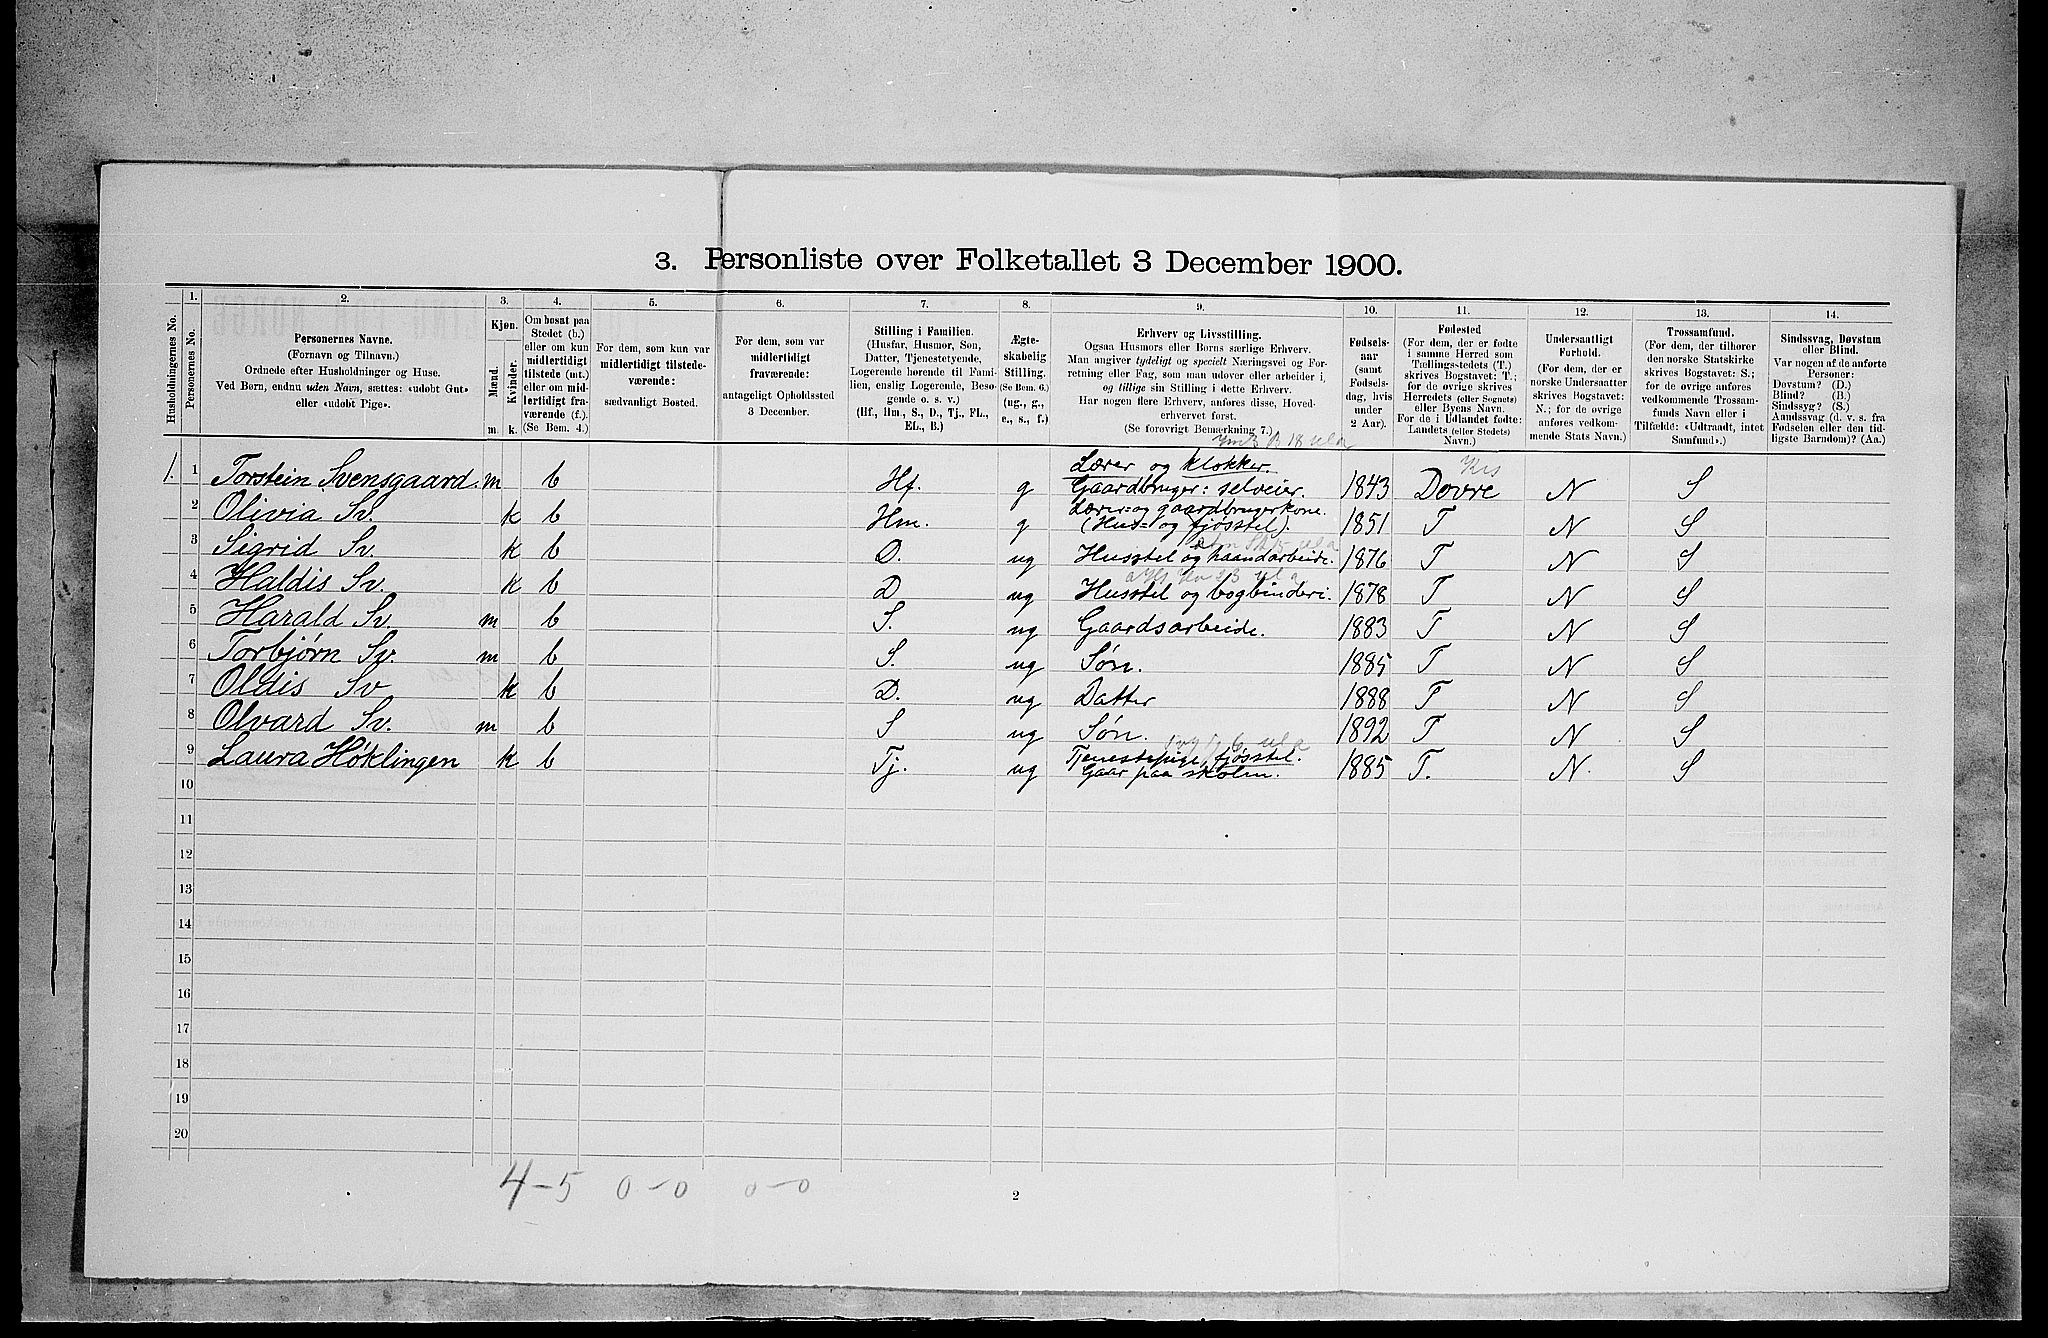 3. Personliste over Folketallet 3 December 1900.
Husholdningernes No.
1. Personernes No.
2. Personernes Navne. (Fornavn og Tilnavn.) Ordnede efter Husholdninger og Huse. Ved Børn, endnu uden Navn, sættes: «udøbt Gut» eller «udøbt Pige».
3. Kjøn. Mænd. m. Kvinder. k.
4. Om bosat paa Stedet (b.) eller om kun midlertidigt tilstede (mt.) eller om midlertidigt fraværende (f.) (Se Bem. 4.)
5. For dem, som kun var midlertidigt tilstedeværende: sædvanligt Bosted.
6. For dem, som var midlertidigt fraværende: antageligt Opholdssted 3 December.
7. Stilling i Familien. (Husfar, Husmor, Søn, Datter, Tjenestetyende, Logerende hørende til Familien, enslig Logerende, Besøgende o. s. v.) (Hf., Hm., S., D., Tj., FL., EL., B.)
8. Ægteskabelig Stilling. (Se Bem. 6.) (ug., g., e., s., f.)
9. Erhverv og Livsstilling. Ogsaa Husmors eller Børns særlige Erhverv. Man angiver tydeligt og specielt Næringsvei og Forretning eller Fag, som man udøver eller arbeider i, og tillige sin Stilling i dette Erhverv. Har nogen flere Erhverv, anføres disse, Hovederhvervet først. (Se forøvrigt Bemærkning 7.)
10. Fødselsaar (samt Fødselsdag, hvis under 2 Aar).
11. Fødested (For dem, der er fødte i samme Herred som Tællingsstedets (T.) skrives Bogstavet: T.; for de øvrige skrives Herredets (eller Sognets) eller Byens Navn. For de i Udlandet fødte: Landets (eller Stedets) Navn.)
12. Undersaatligt Forhold. (For dem, der er norske Undersaatter skrives Bogstavet: N.; for de øvrige anføres vedkommende Stats Navn.)
13. Trossamfund. (For dem, der tilhører den norske Statskirke skrives Bogstavet: S.; for de øvrige anføres vedkommende Trossamfunds Navn eller i Tilfælde: «Udtraadt, intet Samfund».)
14. Sindssvag, Døvstum eller Blind. Var nogen af de anførte Personer: Døvstum? (D.) Blind? (B.) Sindssyg? (S.) Aandssvag (d. v. s. fra Fødselen eller den tidligste Barndom)? (Aa.)
1. 1 Torstein Svensgaard. m b Hf. g Lærer og klokker. Gaardbruger: selveier. 1843 Dovre N S
2 Olivia Sv. k b Hm. g Lærer= og gaardbrugerkone. (Hus= og fjøsstel). 1851 T N S
3 Sigrid Sv. k b D. ug Husstel og haandarbeide. 1876 T N S
4 Haldis Sv. k b D ug Husstel og bogbinderi. 1878 T N S
5 Harald Sv. m b S. ug Gaardsarbeide. 1883 T N S
6 Torbjørn Sv. m b S. ug Søn. 1885 T N S
7 Oldis Sv k b D. ug Datter 1888 T N S
8 Olvard Sv. m b S ug Søn. 1892 T N S
9 Laura Høklingen k b Tj. ug Tjenestepige, fjøsstel. Gaar paa skolen. 1885 T. N. S
10
11
12
13
14
15
16
17
18
19
20
4-5 0-0 0-0
2